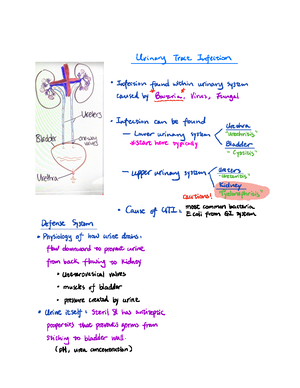 Urinary Tract Infection
• Infection found within urinary system
caused by * Bacteria, * Virus, Fungal
Ureters
Bladder
oneway
valves
Urethra
• Infection can be found
– Lower urinary system
*start here typically
Urethra
"Urethritis"
Bladder
– Cystitis"
– upper urinary system
Ureters
Kidney
cautious!
• Cause of UTI: most common bacteria
E.coli from GI system
Defense System
• Physiology of how urine drains:
flow downward to prevent urine
from back flowing to kidney
• Ureterovesical valves
• muscles of bladder
• pressure created by urine
• Urine itself: Sterile & has antiseptic
properties that prevents germs from
sticking to bladder wall.
(pH, urea concentration)